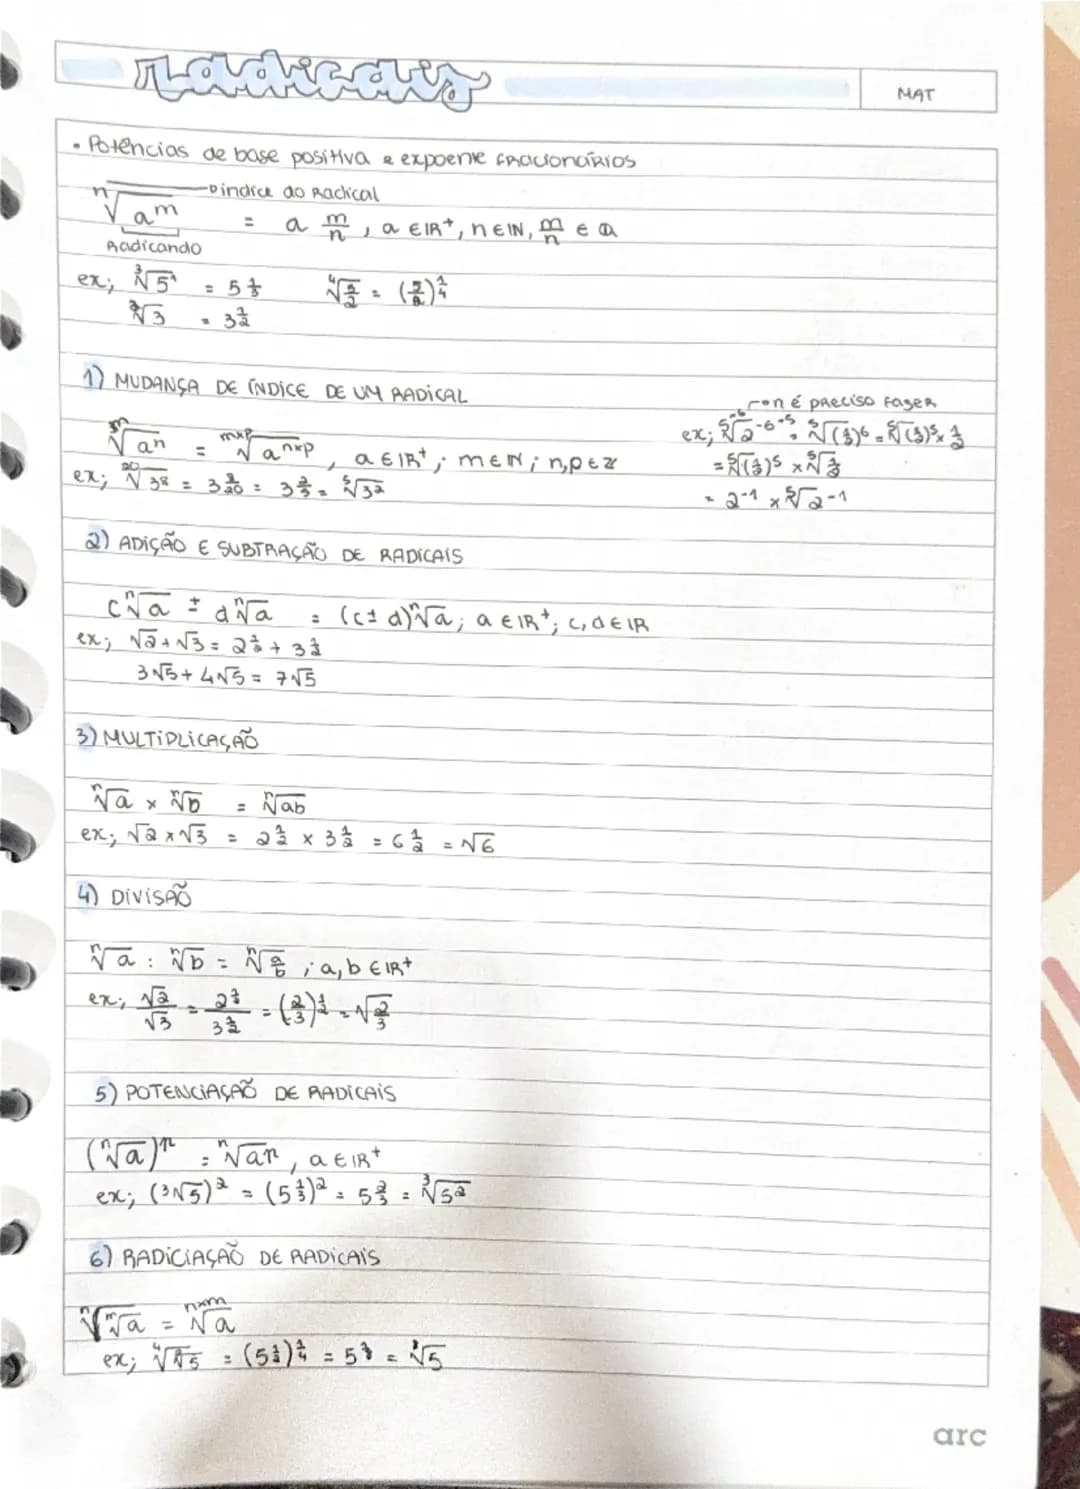 radicais
MAT
• Potências de base positiva e expoente fracionários
→ índice do Radical
ⁿ√a^m = a^(m/n), a ∈ IR⁺, n ∈ IN, m/n ∈ Q
Radicando
ex; ³√5¹ = 5^(1/3)   ⁴√(5/2) = (5/2)^(1/4)
²√3 = 3^(1/2)
1) MUDANÇA DE ÍNDICE DE UM RADICAL
→ n é preciso fazer
ᵐ√aⁿ = ᵐˣᵖ√aⁿˣᵖ, a ∈ IR⁺; m ∈ IN; n,p ∈ Z
ex; ²⁰√3⁸ = 3^(8/20) = 3^(2/5) = ⁵√3²
ex; ⁵√2⁻⁶ = ⁵√(1/2)⁶ = ⁵√(1/2)⁵ × 1/2
= ⁵√(1/2)⁵ × ⁵√1/2
= 2⁻¹ × ⁵√2⁻¹
2) ADIÇÃO E SUBTRAÇÃO DE RADICAIS
cⁿ√a ± dⁿ√a = (c ± d)ⁿ√a; a ∈ IR⁺; c,d ∈ IR
ex; √2 + √3 = 2^(1/2) + 3^(1/2)
3√5 + 4√5 = 7√5
3) MULTIPLICAÇÃO
ⁿ√a × ⁿ√b = ⁿ√ab
ex; √2 × √3 = 2^(1/2) × 3^(1/2) = 6^(1/2) = √6
4) DIVISÃO
ⁿ√a : ⁿ√b = ⁿ√(a/b); a,b ∈ IR⁺
ex; √2/√3 = 2^(1/2)/3^(1/2) = (2/3)^(1/2) = √(2/3)
5) POTENCIAÇÃO DE RADICAIS
(ⁿ√a)ʳ = ⁿ√aʳ, a ∈ IR⁺
ex; (³√5)² = (5^(1/3))² = 5^(2/3) = ³√5²
6) RADICIAÇÃO DE RADICAIS
ⁿ√ᵐ√a = ⁿˣᵐ√a
ex; ⁴√√5 = (5^(1/2))^(1/4) = 5^(1/8) = ⁸√5
arc